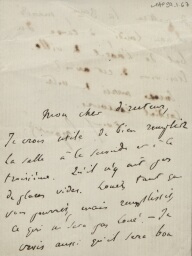 Mon cher directeur,
Je crois utile de bien remplir
la salle à la seconde et à la
troisième. Qu'il n'y ait pas
de places vides. Louez tant que
vous pourrez, mais remplissez
ce qui ne sera pas loué - Je
crois aussi qu'il sera bon